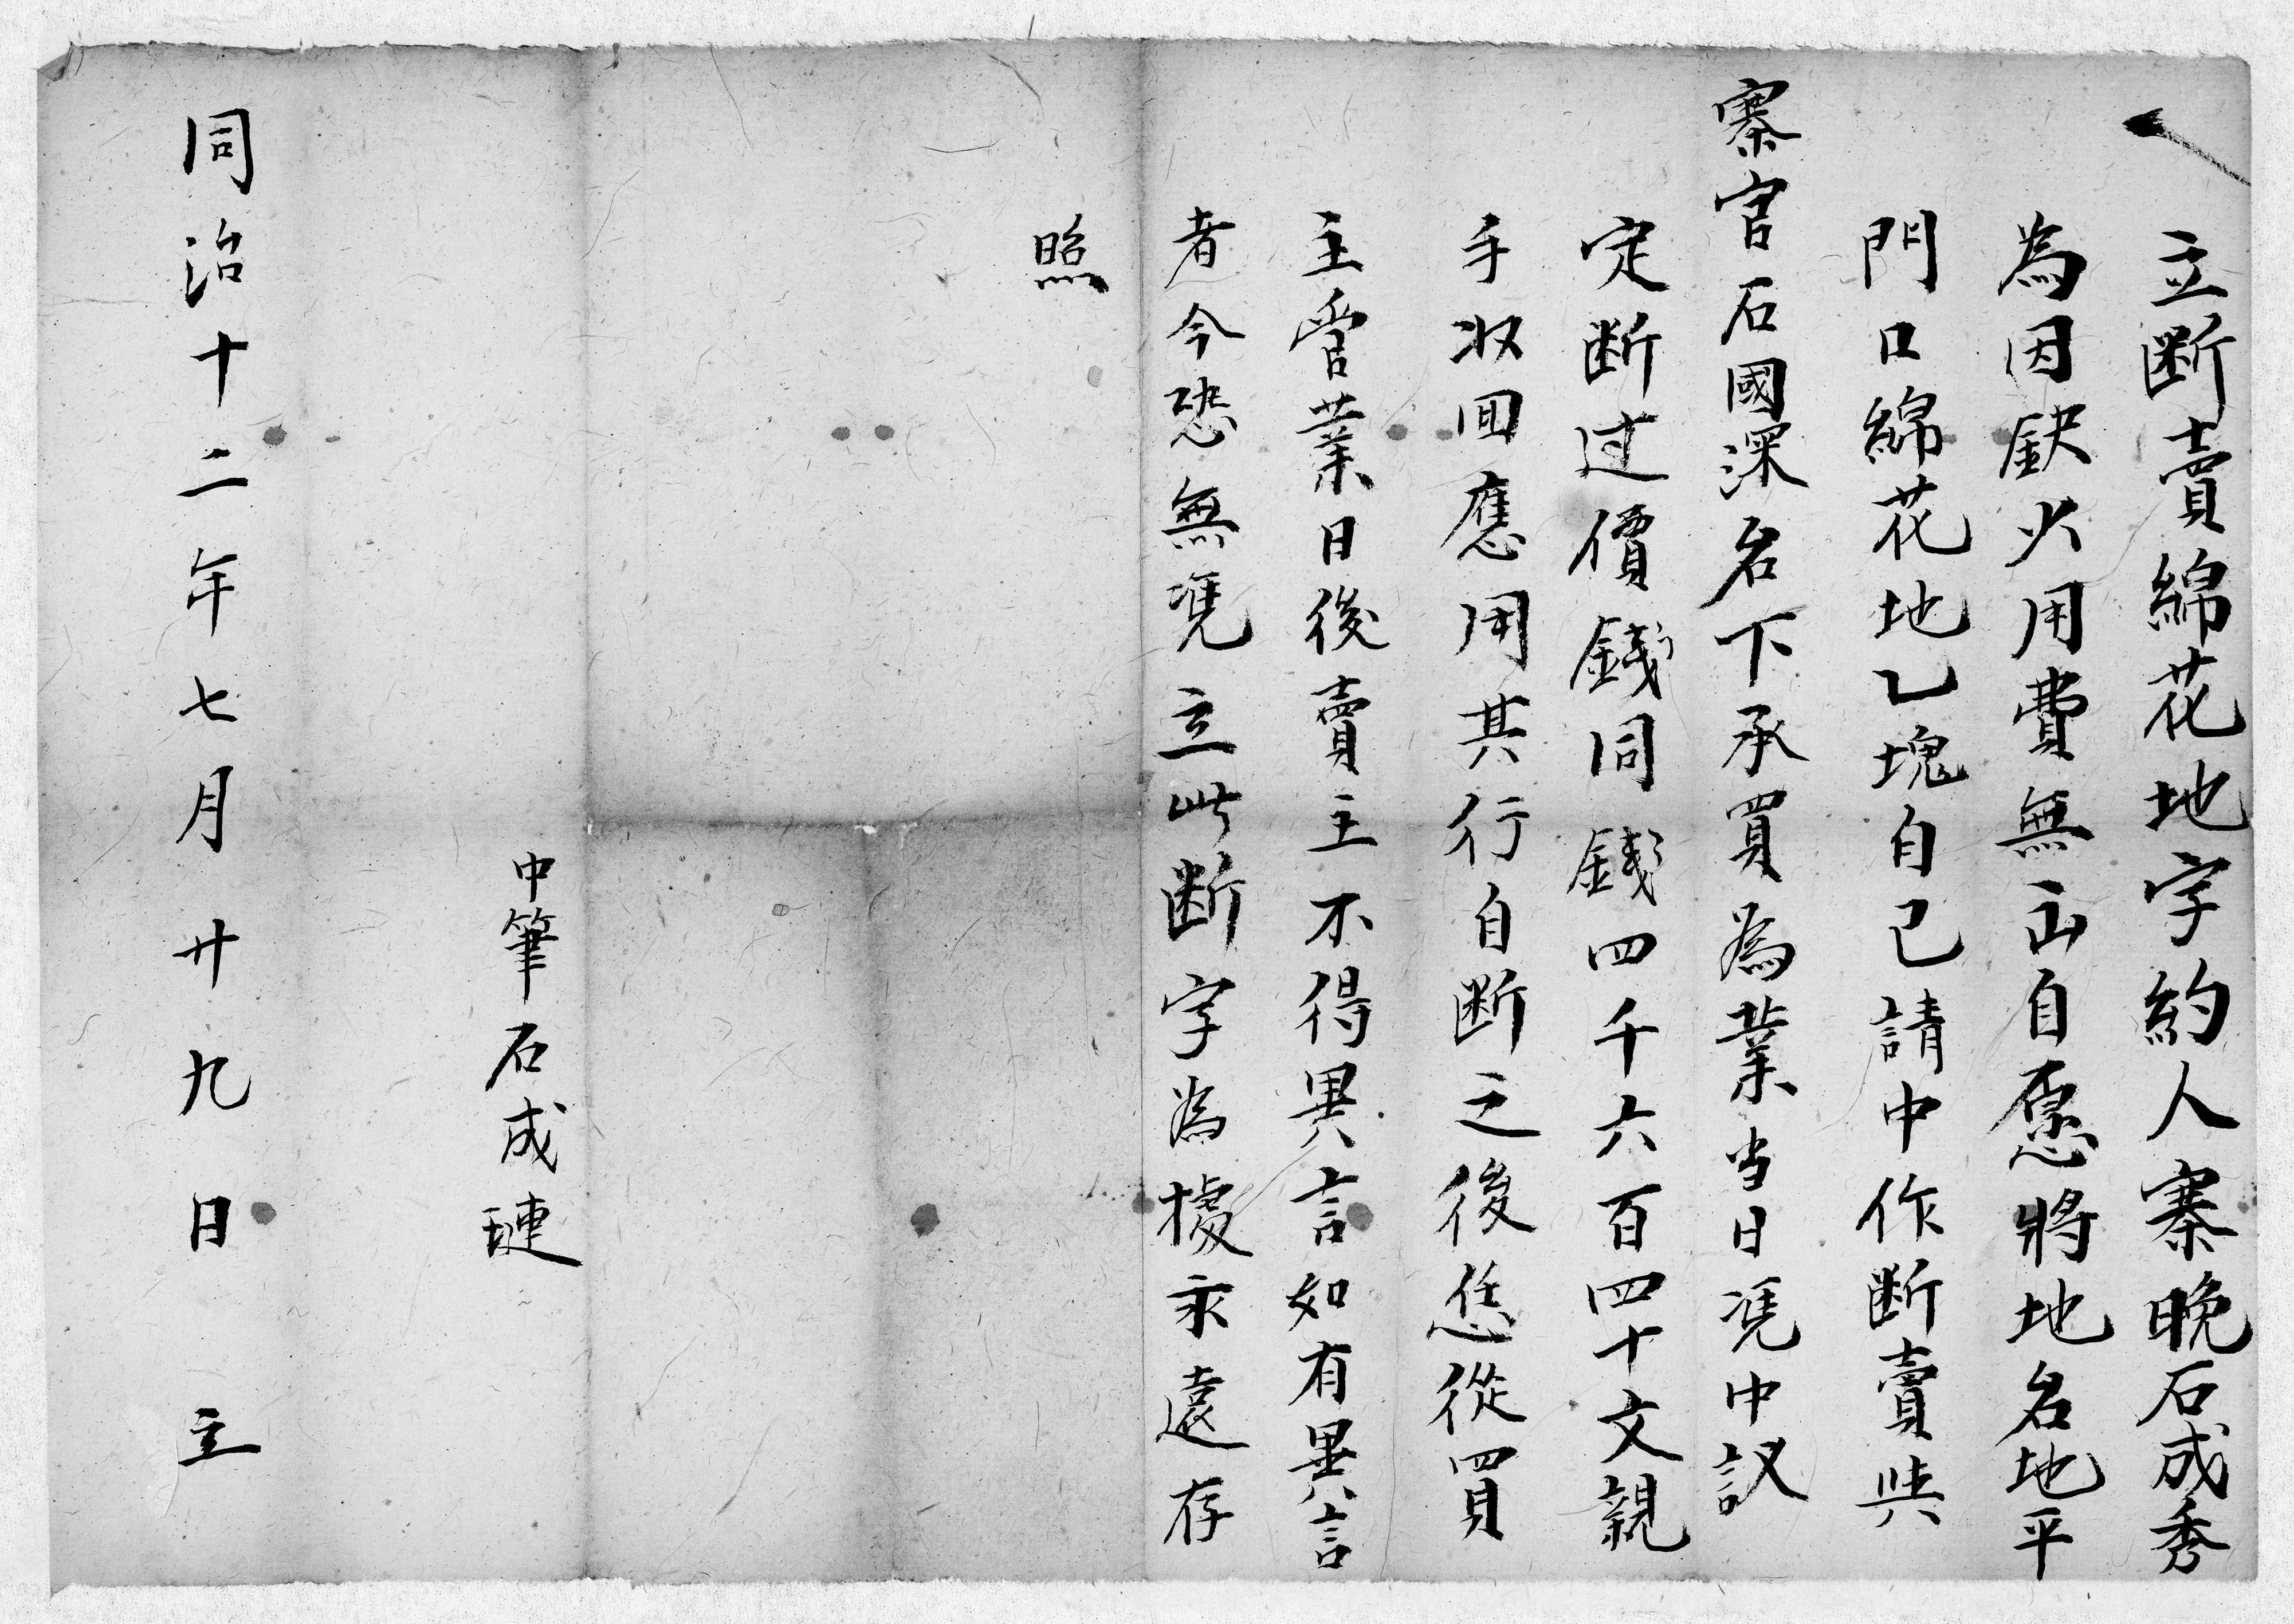 立断賣綿花地字約人寨晚石成秀
為因缺少用費無出自愿將地名地平
門口綿花地乙塊自己請中作断賣與
寨官石國深名下承買為業当日凴中議
定断过價錢同錢四千六百四十文親
手收回應用其行自断之後恁從買
主管業日後賣主不得異言如有異言
者今恐無凴立此断字為據永遠存
照
中筆石成璉
同治十二年七月廿九日 立